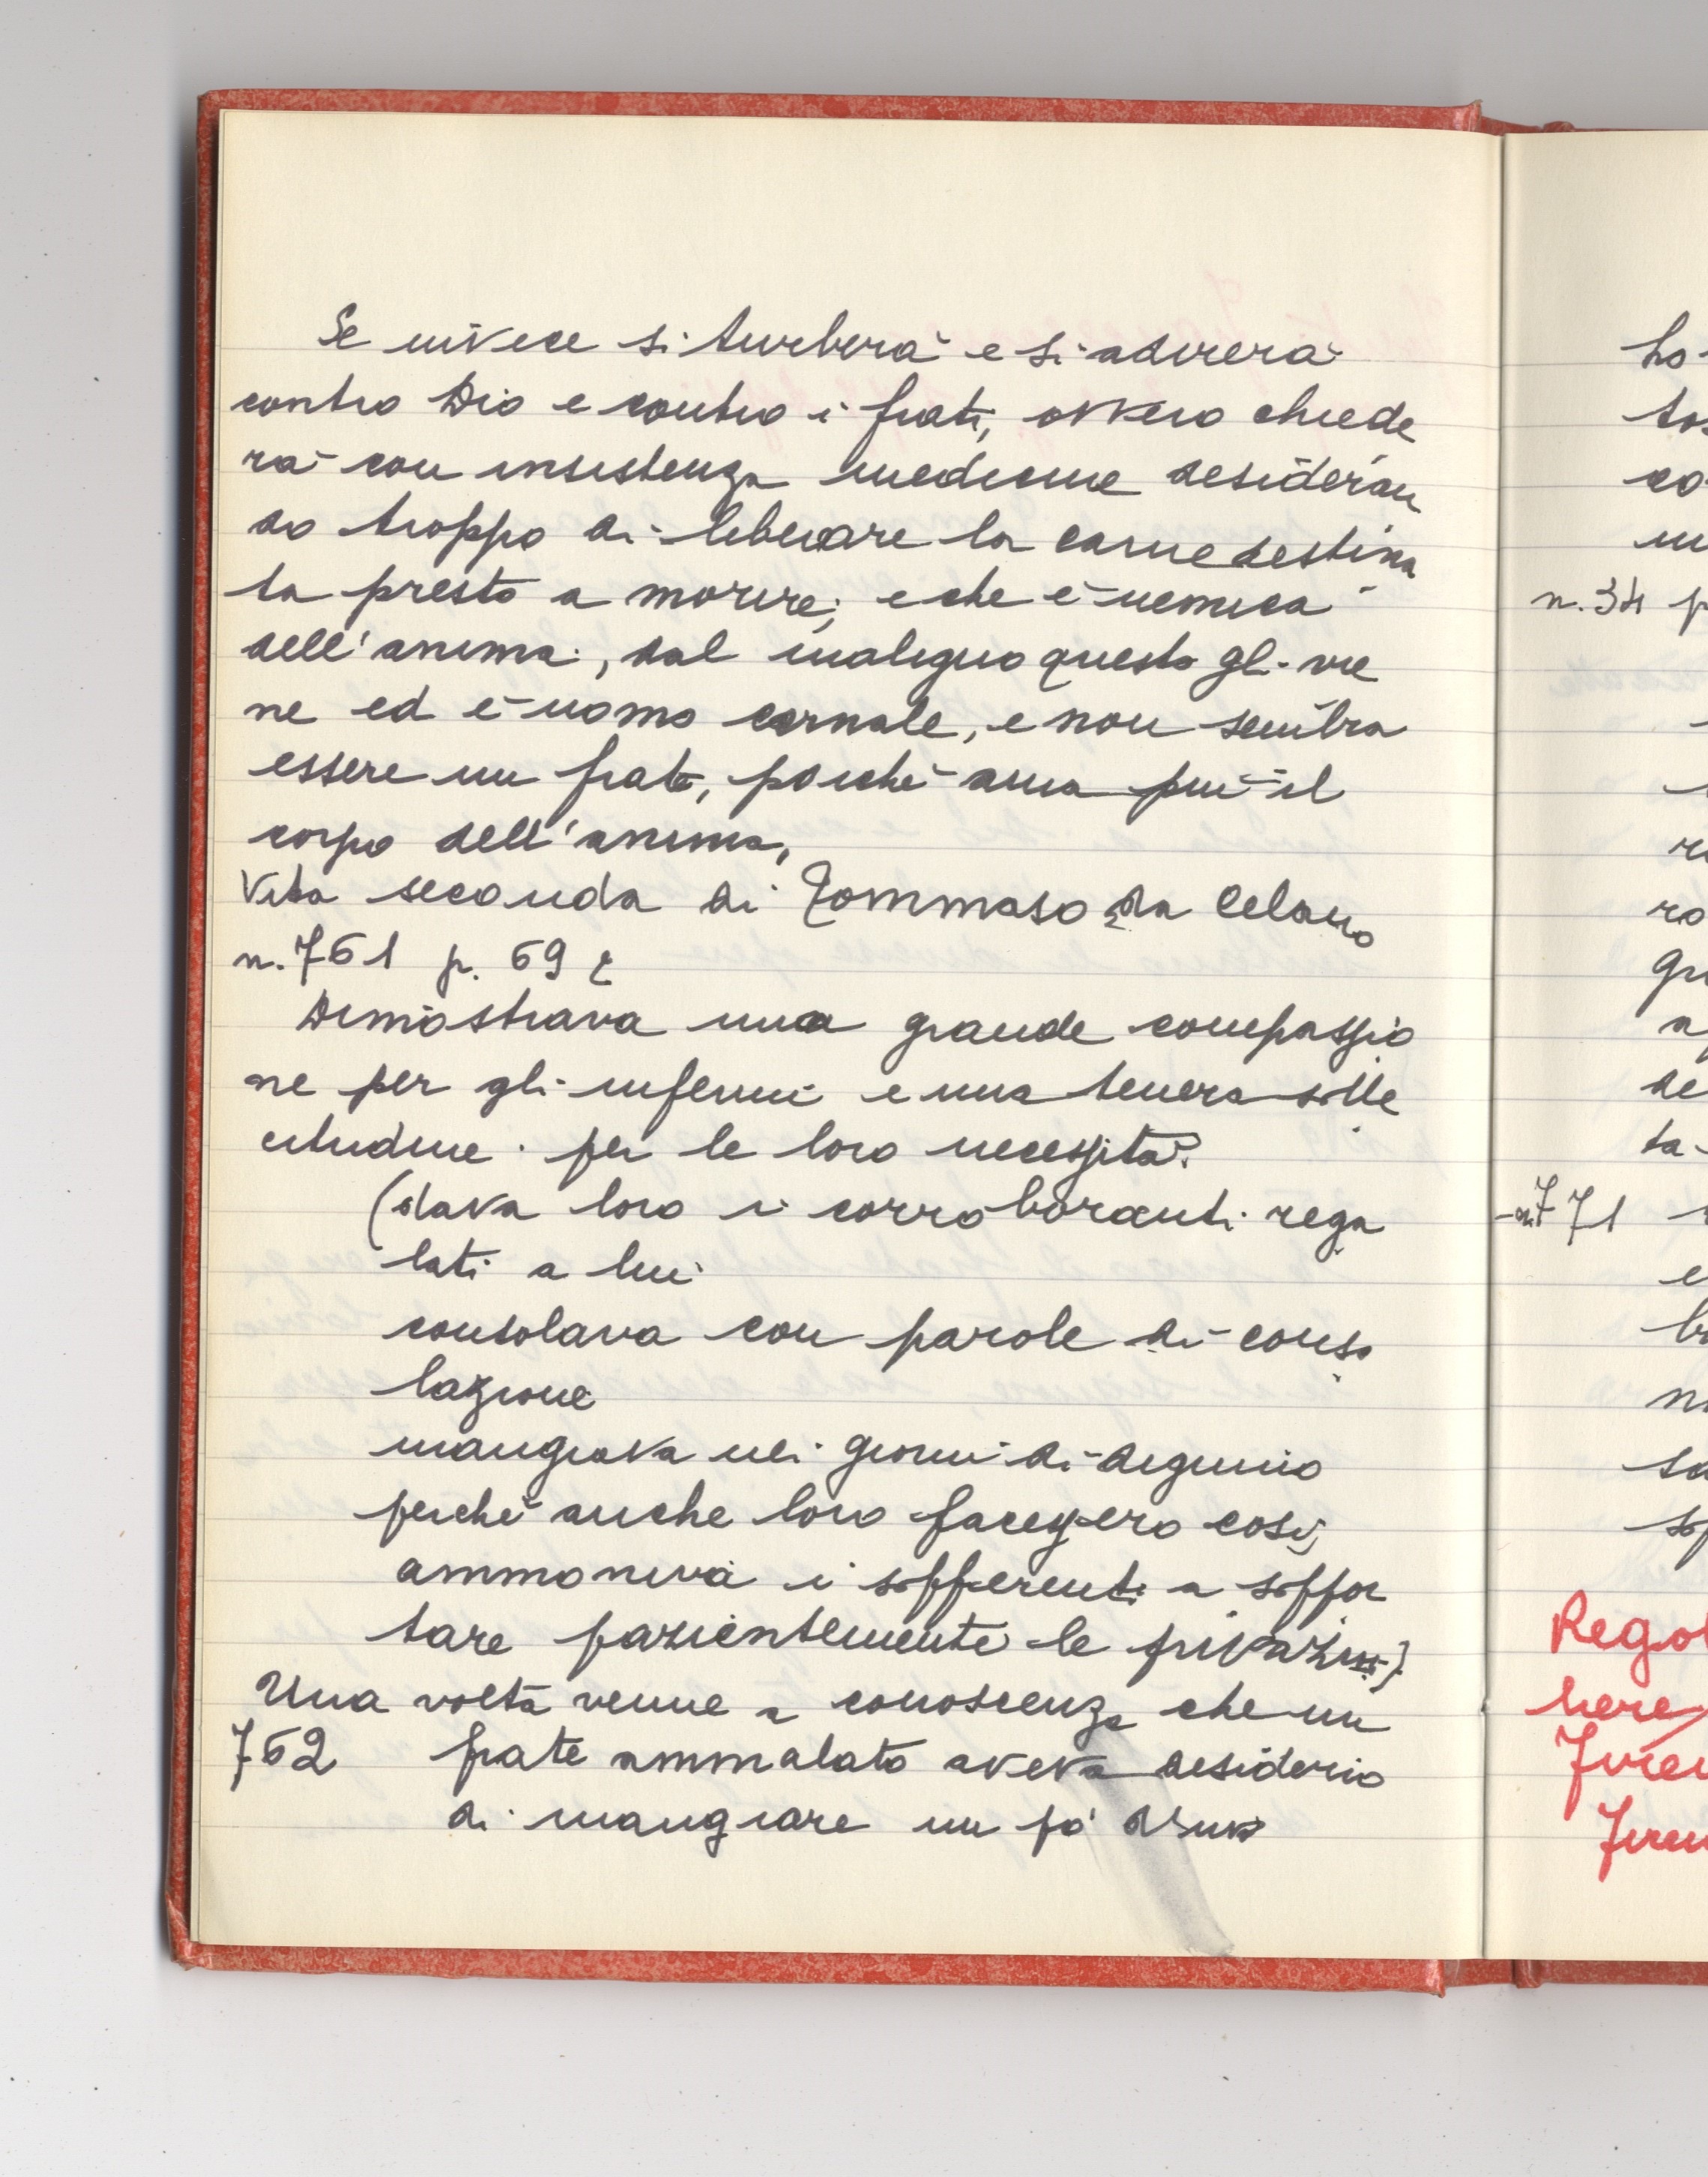 Se invece si turberà e si adirerà
contro Dio e contro i frati, ovvero chiede
rà con insistenza medicine desideran
do troppo di liberare la carne destina
ta presto a morire, e che è nemica
dell'anima, dal maligno questo gli vie
ne ed è uomo carnale, e non sembra
essere un frate, poiché ama più il
corpo dell'anima,
Vita seconda di Tommaso da Celano
n. 761 p. 69
Dimostrava una grande compassio
ne per gli infermi e una tenera solle
citudine per le loro necessità.
(dava loro i corroboranti rega
lati a lui
consolava con parole di conso
lazione
mangiava nei giorni di digiuno
perché anche loro facessero così,
ammoniva i sofferenti a soppor
tare pazientemente le privazioni)
Una volta venne a conoscenza che un
762 frate ammalato aveva desiderio
di mangiare un pò d'uva
ho
to
co
n. 34 p
ro
a
de
ta
771
sa
Rego